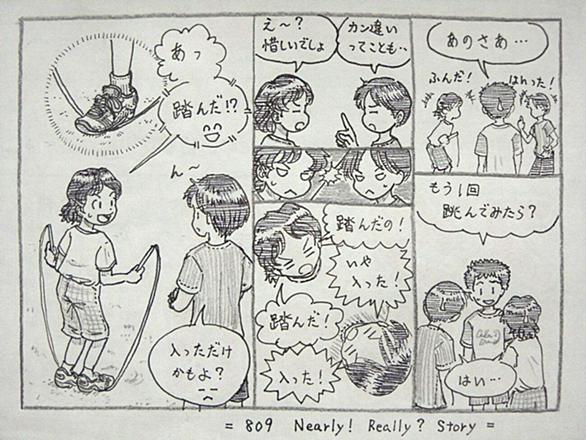 あっ
踏んだ!?
ん〜
入っただけ
かもよ?
え〜?
惜しいでしょ
カン違い
ってことも‥
踏んだの!
いや
入った!
踏んだ!
入った!
あのさあ…
ふんだ!
はいった!
もう1回
跳んでみたら?
はい…
= 809 Nearly! Really? Story =